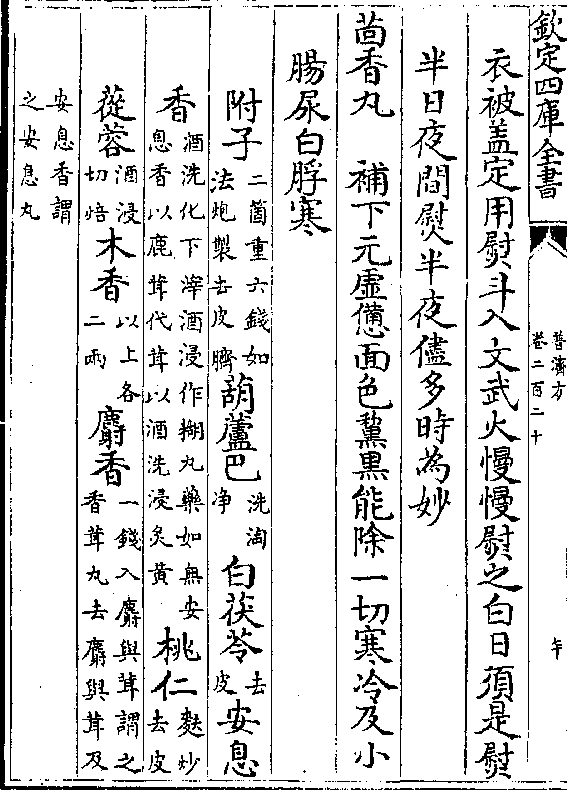 欽定四庫全書
普濟方
卷二百二十
衣被盖定用熨斗入文武火慢慢熨之白日須是熨
半日夜間熨半夜儘多時為妙
茴香丸　補下元虛憊面色黧黑能除一切寒冷及小
腸尿白脬寒
附子二箇重六錢如法炮製去皮臍葫蘆巴洗淘净白茯苓去皮安息
香酒洗化下滓酒浸作糊丸藥如無安息香以鹿茸代茸以酒洗浸炙黄桃仁麩炒去皮
蓯蓉酒浸切焙木香以上各二兩麝香一錢入麝與茸謂之香茸丸去麝與茸及
安息香謂之安息丸